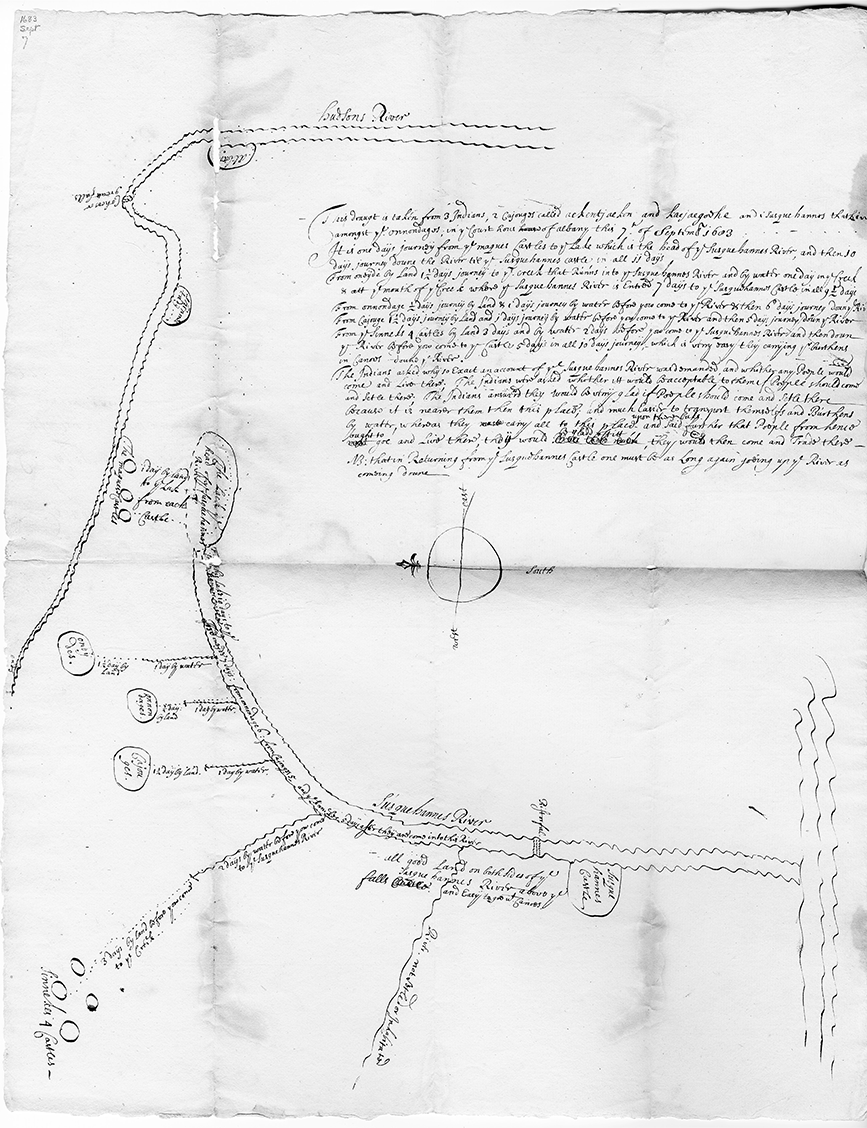 1683
Sept
7
Hudsons River
Albany
great falls
This draugt is taken from 3 Indians, 2 Cajouges called ackentjaekon and kaejaegoehe and 1 Susquehannes that live
amongst ye onnondages, in ye Court house of albany this 7th of Septembr 1683
It is one days journey from ye maquas Castles to ye Lake which is the head of ye Susquehannes River, and then 10
days journey doune the River to ye Susquehannes Castle in all 11 days
From oneide by Land 1½ days journey to ye Creek that Runns into ye Susquehannes River and by water one day in ye Creek
& att ye mouth of ye Creek where ye Susquehannes River is Entred 7 days to ye Susquehannes Castle in all 9½ days
From onnondage ½ days journey by Land & 1 days journey by water before you come to ye River & then 6 days journey doune ye River
From Cajouge 1½ days journey by Land and 1 days journey by water before you come to ye River and then 5 days journey doun ye River
From ye Sinnekes 4 Castles by Land 3 days and by water 2 days before you come to ye Susquehannes River and then doun
ye River before you come to ye Castle 5 days in all 10 days journey, which is very easy they carrying ye Burthens
in Canoes doune ye River.
The Indians asked why so Exact an account of ye Susquehannes River was demanded, and whither any People would
come and Live there. The Indians were asked whether itt would be acceptable to them if People should come
and setle there. The Indians answerd they would be very glad if People should come and setle there
because it is nearer them then this place, and much Easier to transport themselfs and Burthens
by water, whereas they must carry all to this place upon there baks and said further that People from hence
ought to goe and Live there they would be glad of itt they would then come and Trade there
NB: that in Returning from ye Susquehannes Castle one must be as Long again goeing up ye River as
comeing doune
The maquas Castles
1 day by land
to ye Lake
from each
Castle.
The Lake ye
head of Susquehannes
East
South
West
oney
des.
1½ day by
Land
1 day by water
onnon
dages
½ day
by land
1 day by water.
Cajou
ges.
1½ day by land.
1 day by water
Susquehannes River
5 days after they are come into the River
The falls
Susque
hannes
Castle
all good Land on both sides of ye
Susquehannes River above ye
falls
and Easy to goe wt Canoes
2 days by water before you come
to ye Susquehannes River
3 days by land before you come
to ye Creek
Sinnekes 4 Castles